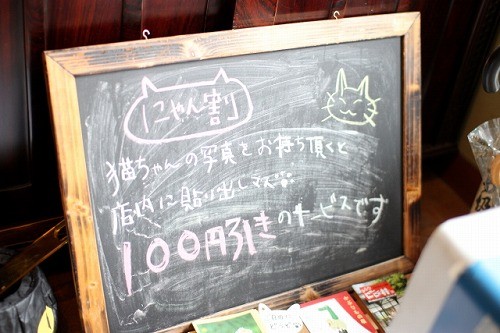 にゃん割
猫ちゃんの写真をお持ち頂くと
店内に貼り出しマス
100円引きのサービスです